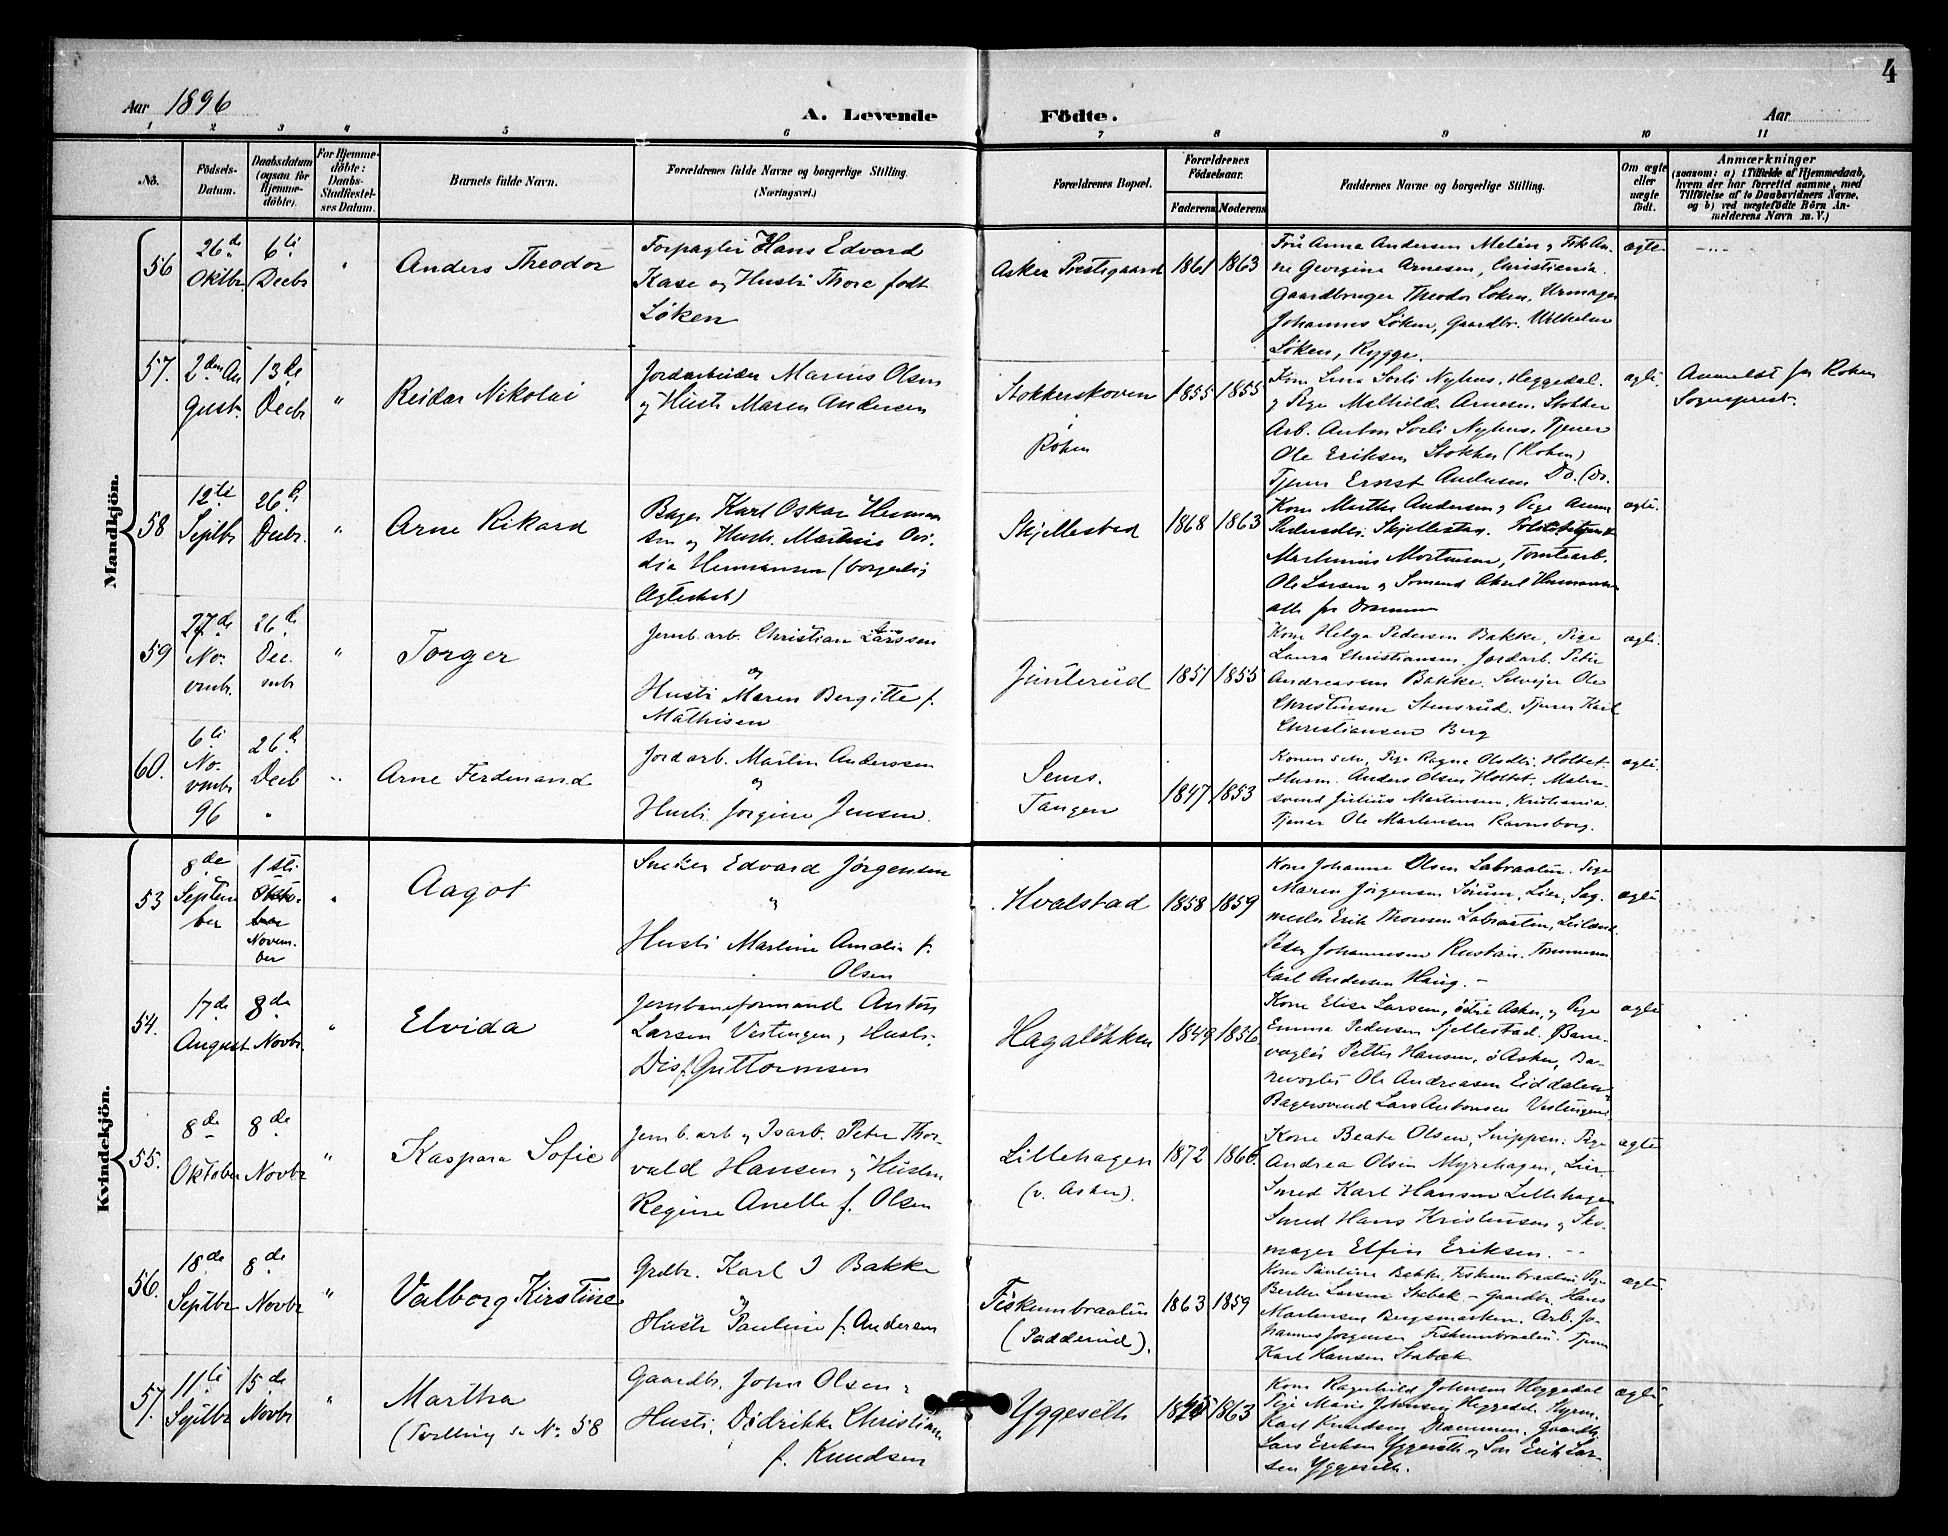 4
Aar 1896
A. Levende
Födte.
Aar
1 2 3 4 5 6 7 8 9 10 11
No.
Födsels-Datum.
Daabsdatum (ogsaa for Hjemme-döbte).
For Hjemme-döbte: Daabs-Stadfestel-ses Datum.
Barnets fulde Navn.
Forældrenes fulde Navne og borgerlige Stilling. (Næringsvei.)
Forældrenes Bopæl.
Forældrenes Födselsaar.
Faderens
Moderens
Faddernes Navne og borgerlige Stilling.
Om ægte eller uægte födt.
Anmærkninger
(saasom: a) i Tilfælde af Hjemmedaab,
hvem der har forrettet samme, med
Tilföielse af to Daabsvidners Navne,
og b) ved uægtefödte Börn An-
melderens Navn m. V.)
Mandkjön.
56
26de Oktbr.
6te Decbr
"
Anders Theodor
Forpagter Hans Edvard
Kase og Hustr Thora født
Løken
Asker Prestegaard
1861
1863
Frue Anna Andersen Melen og Frk An-
ne Georgine Arnesen, Christiania.
Gaardbruger Theodor Løken, Urmager
Johannes Løken, Gaardbr. Wilhelm
Løken, Rygge.
ægte
57.
2den August.
13de Decbr
"
Reidar Nikolai
Jordarbeider Marius Olsen
og Hustr Maren Andersen
Stokkerskoven
i
Røken
1855
1855
Kone Lina Sørli Nyhus, Heggedal.
og Pige Mathilde Arnesen Stokker
Arb. Anton Sørli Nyhus. Tjener
Ole Eriksen Stokker (Røken)
Tjener Ernst Andersen Do. (Do.
ægte.
Anmeldt for Røken
Sogneprest.
58
12te Septbr
26de Decbr.
"
Arne Rikard
Bager Karl Oskar Herman
sen og Hustr. Martine Ovi-
dia Hermansen (borgerlig
Ægteskab)
Skjellestad
1868
1863
Kone Marthe Andersen og Pige Anna
Pedersdtr. Skjellestad.
Martinius Mortensen, Tomtearb.
Ole Larsen og Sømand Aksel Hermansen
alle fra Drammen
ægte.
59
27de Novembr.
26de Decembr
"
Torger
Jernb. arb. Christian Larssen
og
Hustr. Maren Bergitte f.
Mathisen
Jünterud
1851
1855
Kone Helga Pedersen Bakke, Pige
Laura Christiansen. Jordarb. Peter
Andreasen Bakke. Selveier Ole
Christensen Stensrud. Tjener Karl
Christiansen Berg
ægte.
60.
6te Novembr 96
26de Decb
"
Arne Ferdinand
Jordarb. Martin Anderssen
og
Hustr. Jørgine Jensen.
Sems.
Tangen
1847
1853
Konen selv, Pige Ragna Olsdtr. Holtet.
Husm. Anders Olsen Holtet, Maler-
svend Julius Martinsen, Kristiania.
Tjener Ole Martinsen Ravnsborg.
ægte.
Kvindekjön.
53
8de September
1ste November
"
Aagot
Snekker Edvard Jørgensen
"
Hustr. Martine Amalie f.
Olsen
Hvalstad
1858
1859
Kone Johanne Olsen Labraaten. Pige
Maren Jørgensen Sørum, Lier, Sag-
mester Erik Thorsen Labraaten, Leiland.
Peder Johannesen Rustan. Tømmerm
Karl Andersen Haug. –
ægte
54.
17de August
8de Novbr.
"
Elvida
Jernbaneformand Anton
Larsen Vestengen og Hustr.
Dis f. Guttormsen
Hagaløkken
1849
1856.
Kone Elise Larsen, østre Asker, og Pige
Emma Pedersen Skjellestad. Bane-
vogter Petter Hansen, ø Asker, Ba-
nevogter Ole Andreasen Eiddalen
Bagersvend Lars Antonsen Vestengen
ægte
55.
8de Oktober
8de Novbr
"
Kaspara Sofie
Jernb. arb og Isarb. Peter Thor-
vald Hansen og Hustru
Regine Anette f. Olsen
Lillehagen
(v. Asker).
1872
1866.
Kone Beate Olsen, Snippen. Pige
Andrea Olsen Myrehagen, Lier-
Smed Karl Hansen Lillehagen
Smed Hans Kristensen og Sko-
mager Elfin Eriksen. –
ægte
56.
18de Septbr
8de Novbr
"
Valborg Kirstine
Grdbr. Karl J Bakke
og
Hustr Pauline f. Andersen
Fiskumbraaten
(Padderud).
1863
1859
Kone Pauline Bakke, Fiskumbraaten. Pige
Berthe Larsen Stabæk – Gaardbr. Hans
Martinsen Bergsmarken. Arb. Jo-
hannes Jørgensen Fiskumbraaten. Tjener
Karl Hansen Stabæk
ægte.
57.
11te Septbr
15de Novbr
"
Martha
(Tvilling se No. 58
Gaardbr. John Olsen og
Hustr. Didrikke Christiane
f. Knudsen
Yggeseth
1863
Kone Ragnhild Johnsen Heggedal
Pige Marie Johnsen Heggedal. Styrm.
Karl Knudsen Drammen. Gaardb.
Lars Eriksen Yggeseth og Søn Erik Lar-
sen Yggeseth.
ægte.